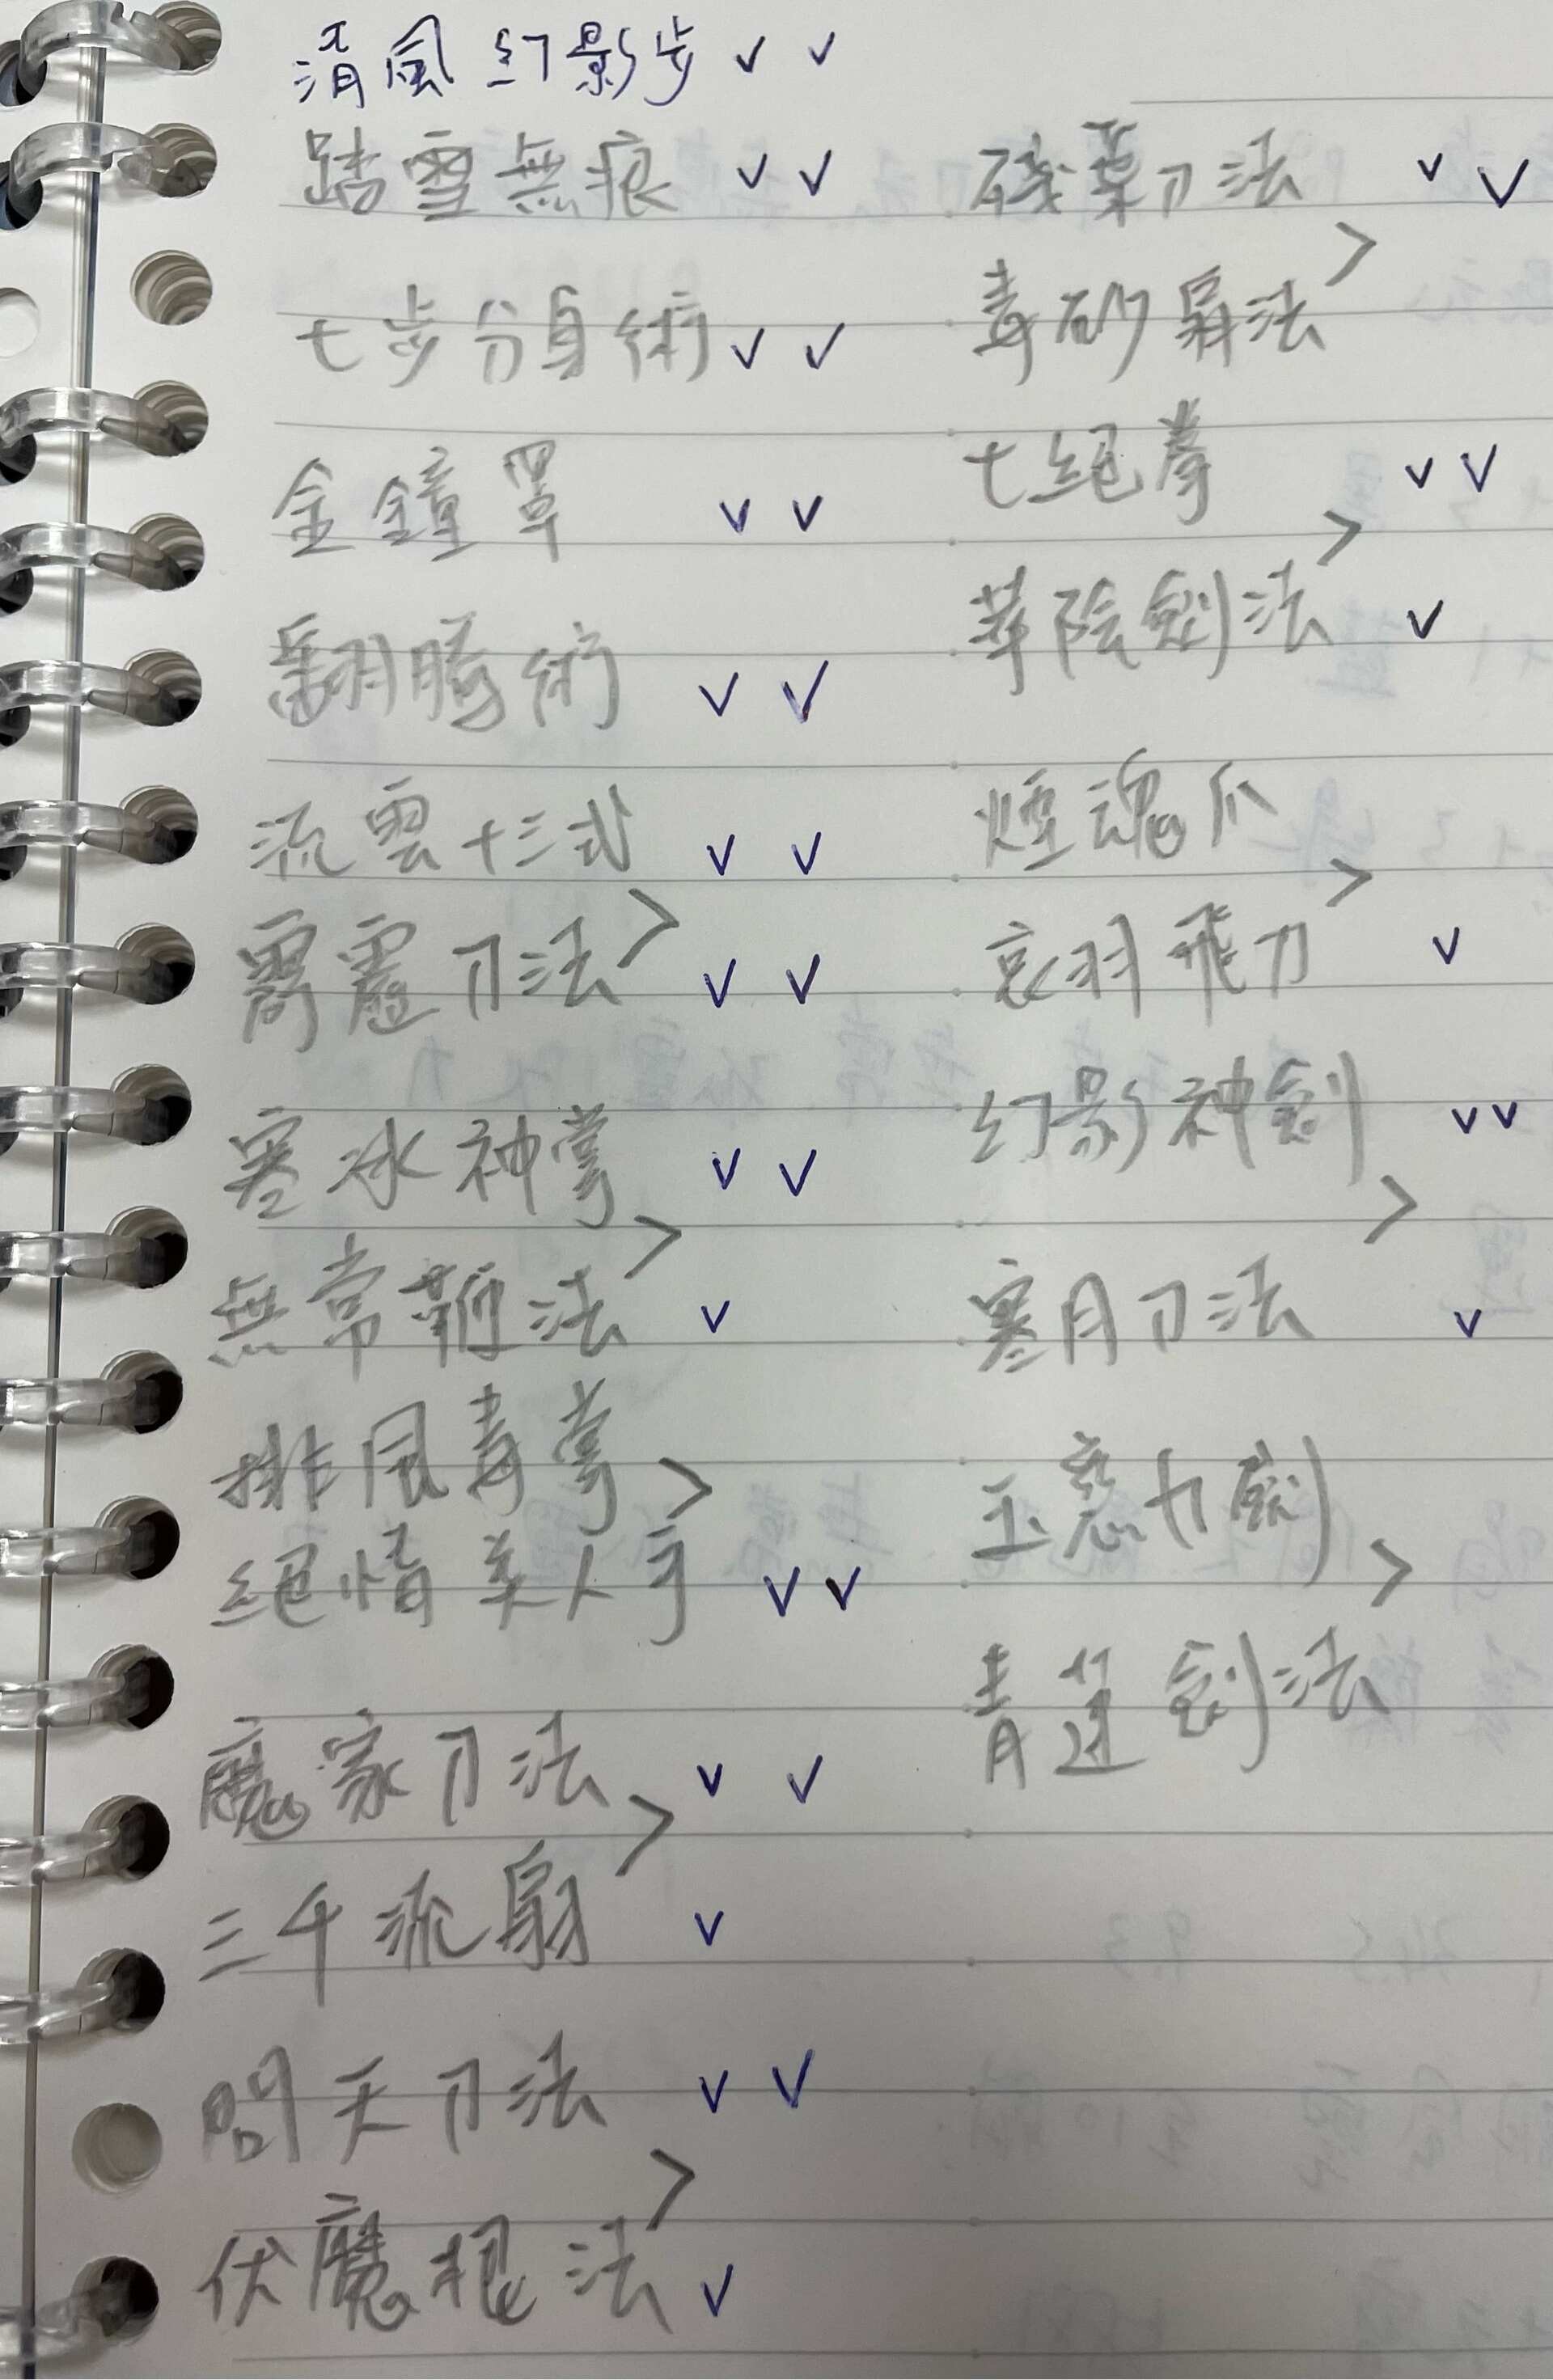 清風幻影步 ✓ ✓
踏雪無痕 ✓ ✓
七步分身術 ✓ ✓
金鐘罩 ✓ ✓
翻騰術 ✓ ✓
流雲十三式 ✓ ✓
>
霹靂刀法 ✓ ✓
寒冰神掌 ✓ ✓
>
無常鞭法 ✓
排風毒掌
>
絕情美人手 ✓ ✓
魔家刀法 ✓ ✓
>
三千流扇 ✓
問天刀法 ✓ ✓
>
伏魔棍法 ✓
殘葉刀法 ✓ ✓
>
毒砂扇法
七絕拳 ✓ ✓
>
華陰劍法 ✓
煙魂爪
>
哀羽飛刀 ✓
幻影神劍 ✓ ✓
>
寒月刀法 ✓
玉 九劍
>
青蓮劍法